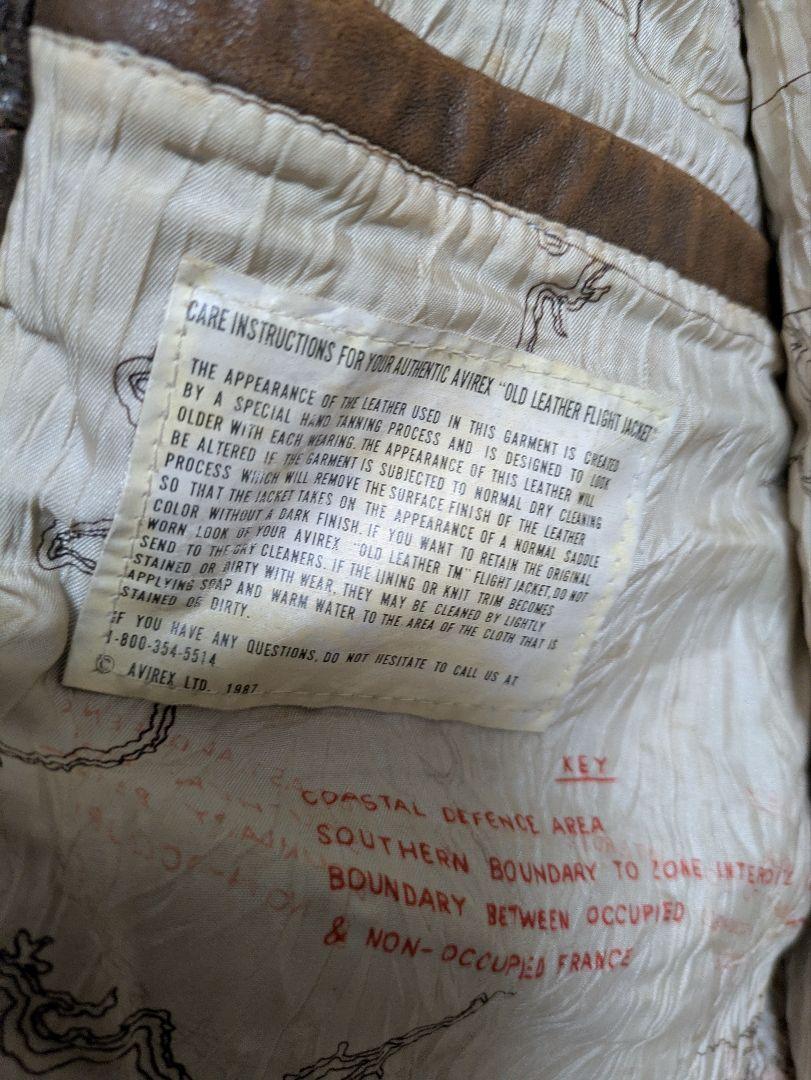 CARE INSTRUCTIONS FOR YOUR AUTHENTIC AVIREX "OLD LEATHER FLIGHT JACKET"
THE APPEARANCE OF THE LEATHER USED IN THIS GARMENT IS CREATED
BY A SPECIAL HAND TANNING PROCESS AND IS DESIGNED TO LOOK
OLDER WITH EACH WEARING. THE APPEARANCE OF THIS LEATHER WILL
BE ALTERED IF THE GARMENT IS SUBJECTED TO NORMAL DRY CLEANING
PROCESS WHICH WILL REMOVE THE SURFACE FINISH OF THE LEATHER
SO THAT THE JACKET TAKES ON THE APPEARANCE OF A NORMAL SADDLE
COLOR WITHOUT A DARK FINISH. IF YOU WANT TO RETAIN THE ORIGINAL
WORN LOOK OF YOUR AVIREX "OLD LEATHER TM" FLIGHT JACKET, DO NOT
SEND TO THE DRY CLEANERS. IF THE LINING OR KNIT TRIM BECOMES
STAINED OR DIRTY WITH WEAR, THEY MAY BE CLEANED BY LIGHTLY
APPLYING SOAP AND WARM WATER TO THE AREA OF THE CLOTH THAT IS
STAINED OR DIRTY.
IF YOU HAVE ANY QUESTIONS, DO NOT HESITATE TO CALL US AT
1-800-354-5514
© AVIREX LTD. 1987
KEY
COASTAL DEFENCE AREA
SOUTHERN BOUNDARY TO ZONE INTERDITE
BOUNDARY BETWEEN OCCUPIED
& NON-OCCUPIED FRANCE